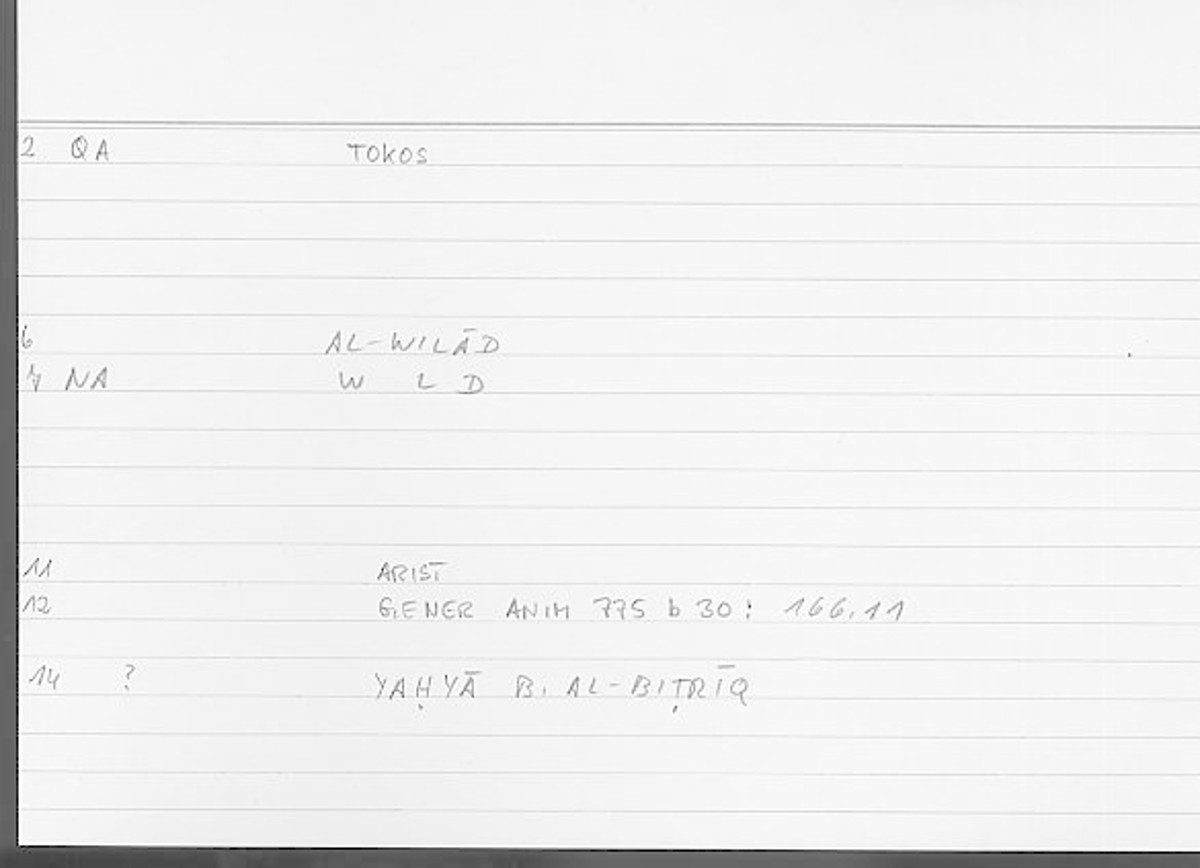 2 QA TOKOS
6 AL-WILĀD
7 NA W L D
11 ARIST
12 GENER ANIM 775 b 30: 166,11
14 ? YAḤYĀ B. AL-BIṬRĪQ